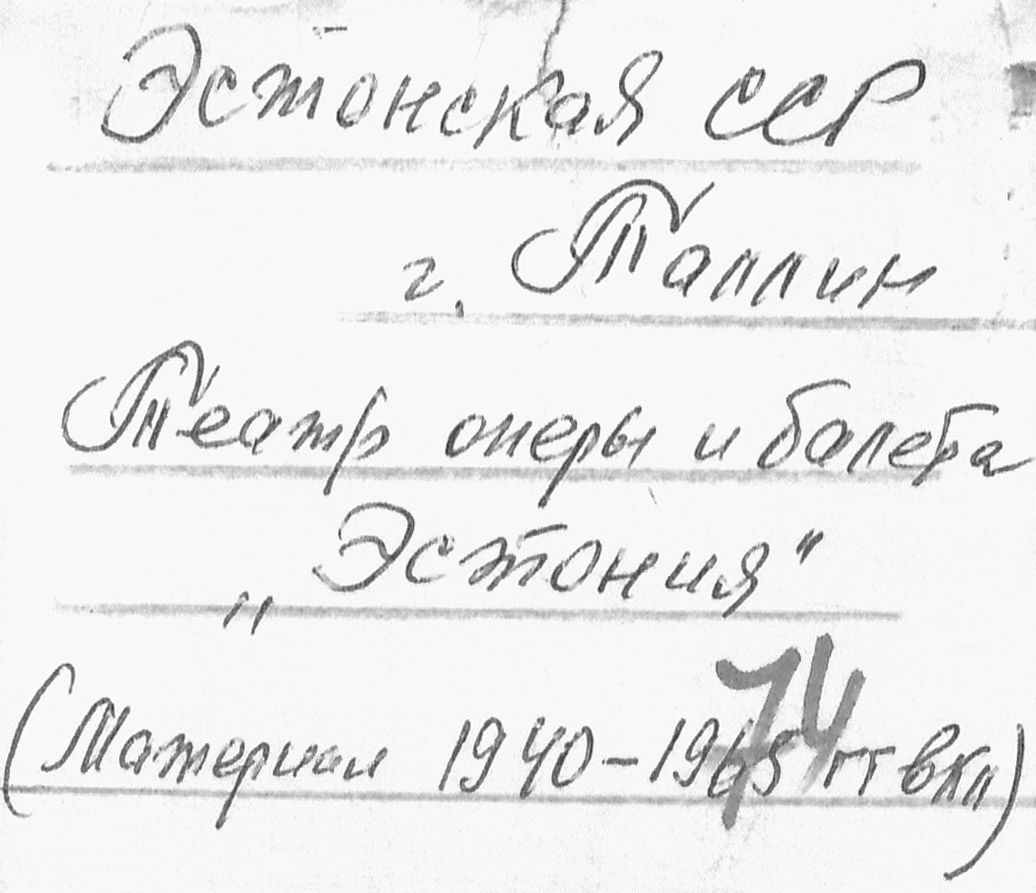 Эстонская ССР
г. Таллин
Театр оперы и балета
„Эстония"
(Материал 1940-1965 гг вкл)
74